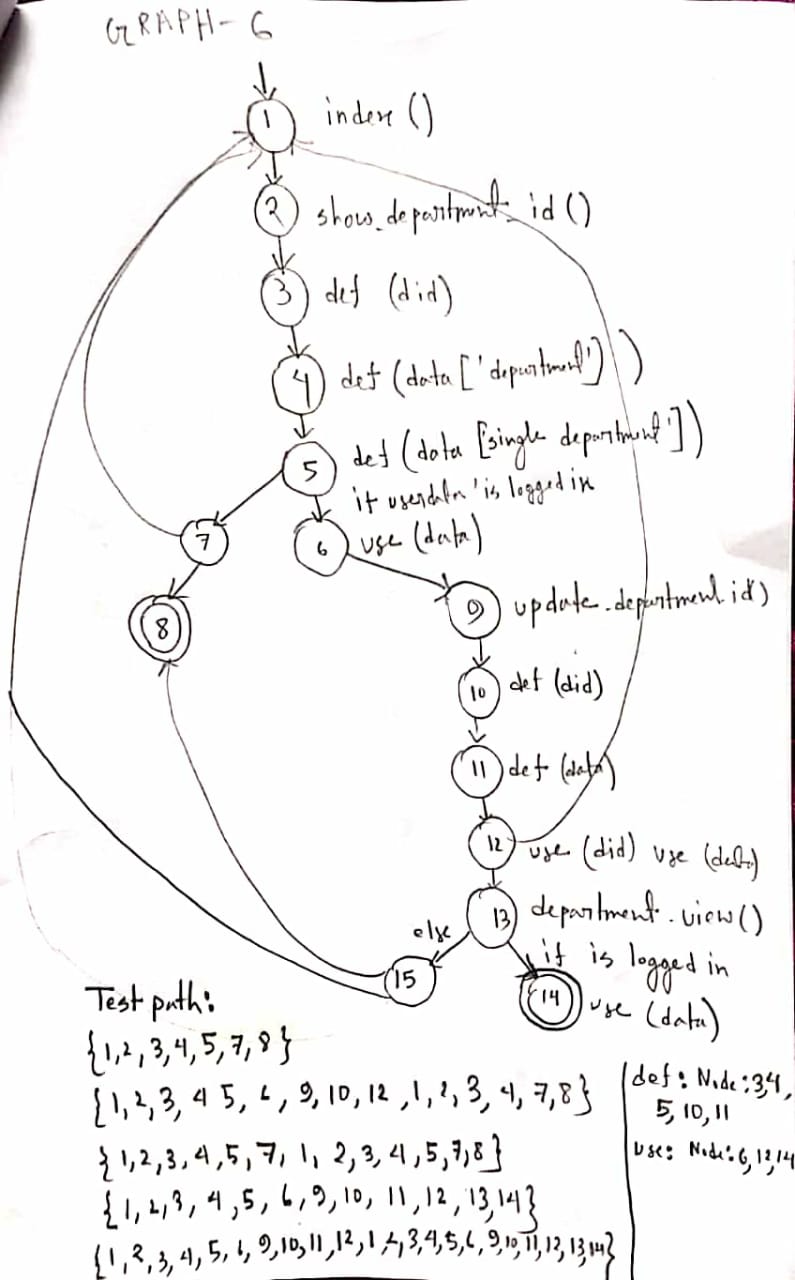 GRAPH-6
1 index ()
2 show_department_id ()
3 def (did)
4 def (data ['department'])
5 def (data [single department'])
if userdata 'is logged in
7
6 use (data)
8
9 update.department id)
10 def (did)
11 def (data)
12 use (did) use (data)
13 department.view()
else
if is logged in
15
14 use (data)
Test path:
{1,2,3,4,5,7,8}
{1,2,3,4 5, 6, 9,10,12,1,2,3,4,7,8}
{1,2,3,4,5,7,1, 2,3,4,5,7,8}
{1,2,3, 4,5, 6,9,10, 11,12,13,14}
{1,2,3,4,5,6,9,10,11,12,1,2,3,4,5,6,9,10,11,12,13,14}
def: Node:3,4,
5,10,11
use: Node:6,12,14